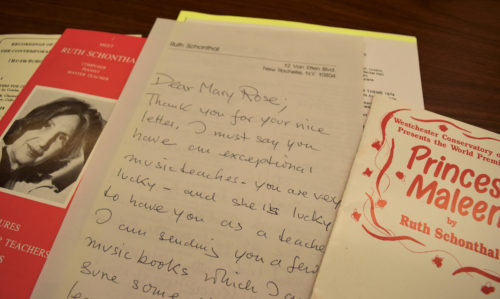 RECORDINGS OF
THE CONTEMPORA
MEET
RUTH SCHONTHA
COMPOSER
PIANIST
MASTER TEACHER
TURES
TEACHERS
S
Ruth Schonthal
12 Van Etten Blvd.
New Rochelle, N.Y. 10804
Dear Mary Rose,
Thank you for your nice
letter, I must say you
have an exceptional
music teacher - you are very
lucky - and she is lucky
to have you as a teache
I am sending you a few
music books which I a
sure some
le
Westchester Conservatory o
Presents the World Premie
Princes
Maleen
by
Ruth Schonthal